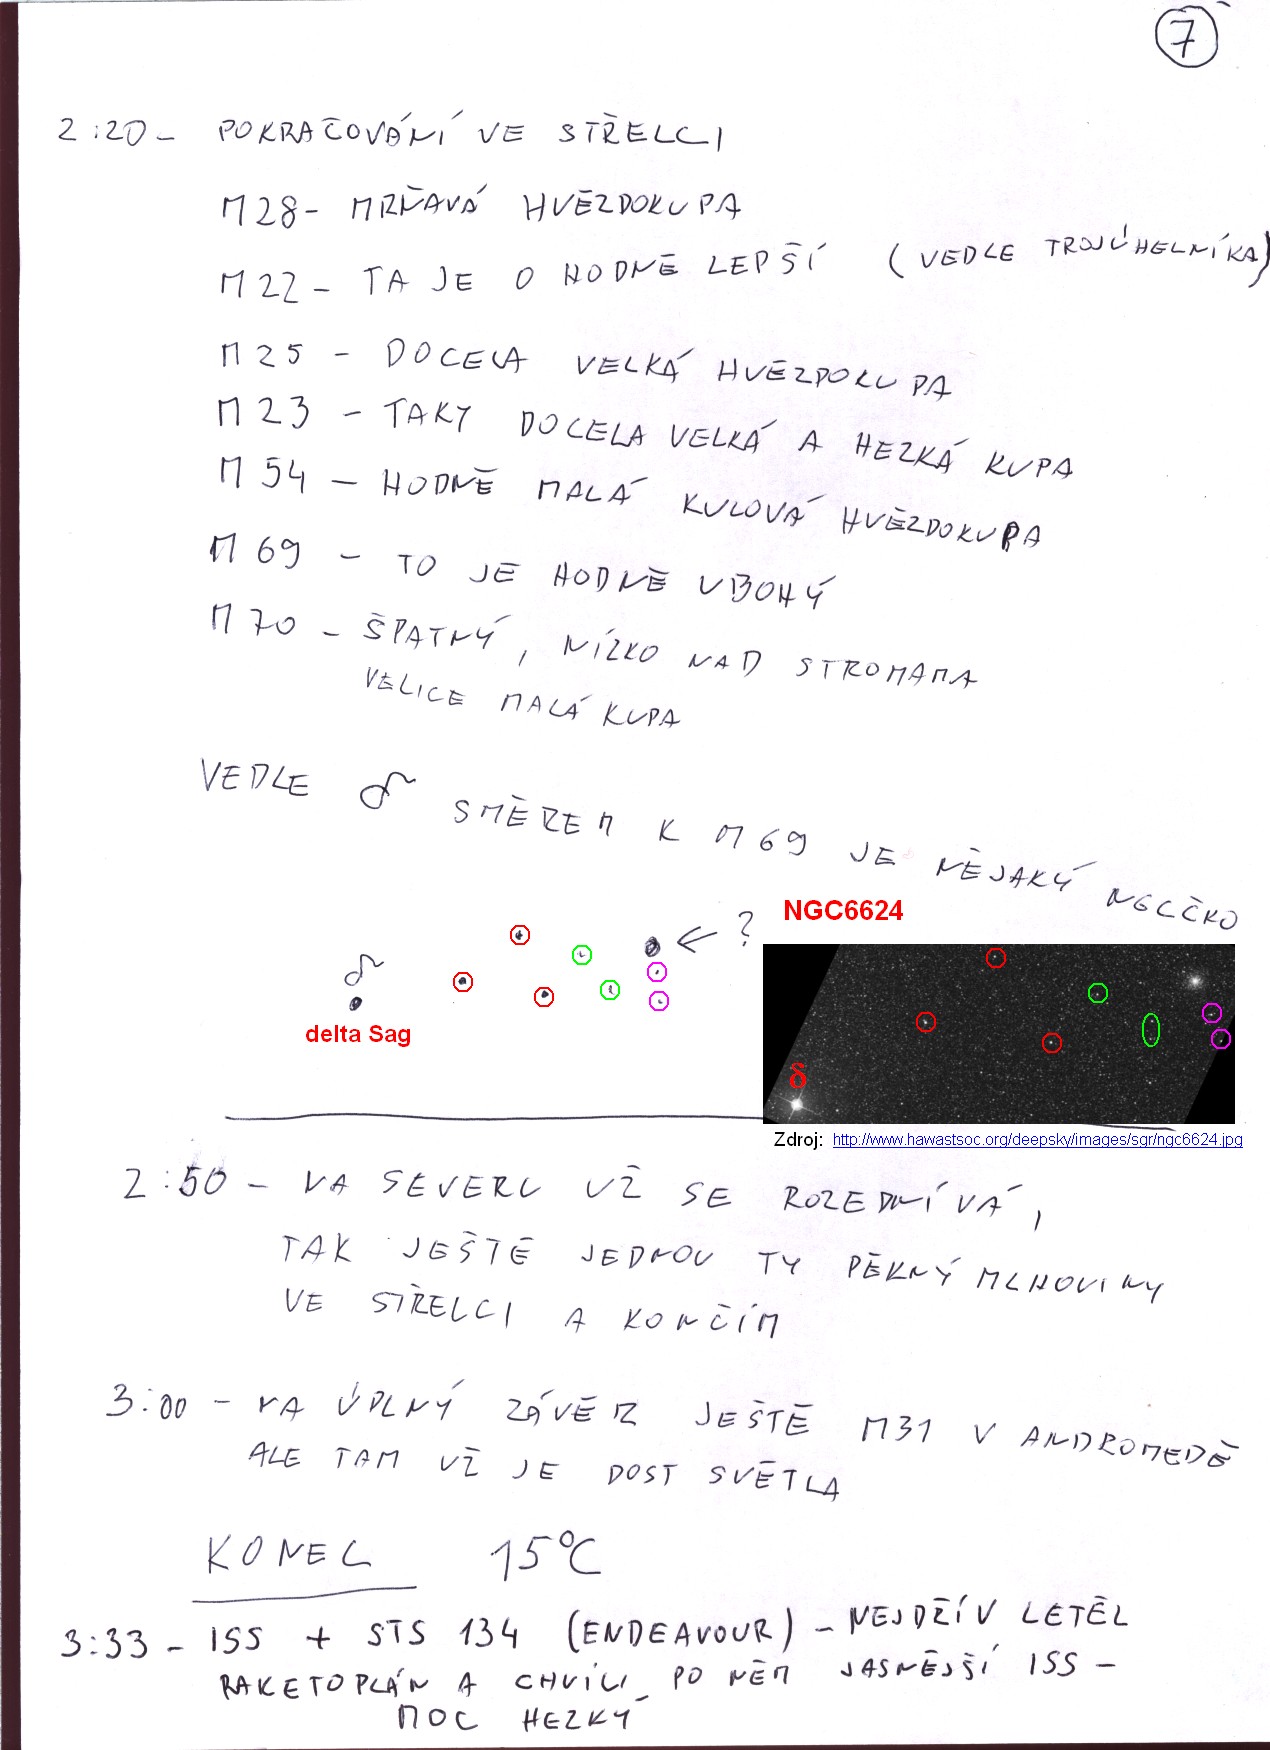 7
2:20 - POKRAČOVÁNÍ VE STŘELCI
M28 - MRŇAVÁ HVĚZDOKUPA
M22 - TA JE O HODNĚ LEPŠÍ (VEDLE TROJÚHELNÍKA)
M25 - DOCELA VELKÁ HVĚZDOKUPA
M23 - TAKY DOCELA VELKÁ A HEZKÁ KUPA
M54 - HODNĚ MALÁ KULOVÁ HVĚZDOKUPA
M69 - TO JE HODNĚ UBOHÝ
M70 - ŠPATNÝ, NÍZKO NAD STROMAMA
VELICE MALÁ KUPA
VEDLE δ SMĚREM K M69 JE NĚJAKÝ NGCČKO
NGC6624
?
δ
delta Sag
δ
Zdroj: http://www.hawastsoc.org/deepsky/images/sgr/ngc6624.jpg
2:50 - NA SEVERU UŽ SE ROZEDNÍVÁ,
TAK JEŠTĚ JEDNOU TY PĚKNÝ MLHOVINY
VE STŘELCI A KONČÍM
3:00 - NA ÚPLNÝ ZÁVĚR JEŠTĚ M31 V ANDROMEDĚ
ALE TAM UŽ JE DOST SVĚTLA
KONEC 15°C
3:33 - ISS + STS 134 (ENDEAVOUR) - NEJDŘÍV LETĚL
RAKETOPLÁN A CHVÍLI PO NĚM JASNĚJŠÍ ISS -
MOC HEZKÝ